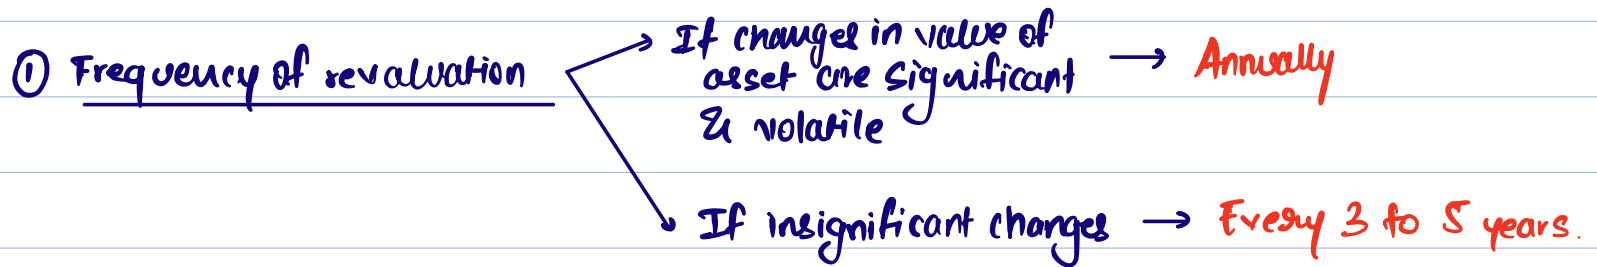 ① Frequency of revaluation
If changes in value of
asset are significant
& volatile
→ Annually
If insignificant changes → Every 3 to 5 years.